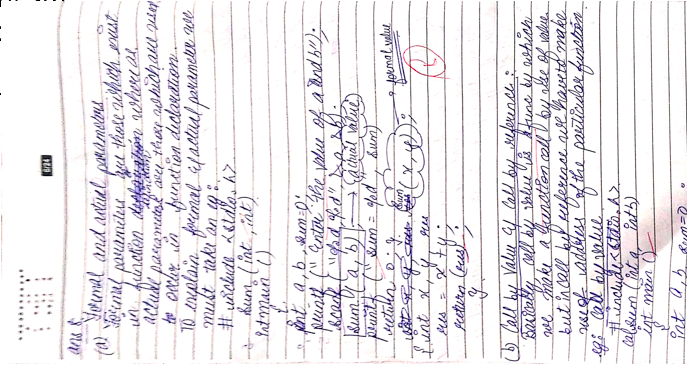 ans 8.
Formal and actual parameters
(a) Formal parameters are those which exist
in function definition whereas
actual parameters are those which are used
to occur in function declaration.
To explain formal & actual parameter we
must take an eg:
# include <stdio.h>
sum (int, int);
int main ()
{
int a, b, sum=0;
printf (" Enter the value of a and b");
scanf (" %d %d",
sum (a, b) → (actual value)
printf (" sum = %d", sum);
return 0; }
sum (x, y); → formal value
{ int x, y, res
res = x + y;
return (res);
}
(b) Call by value & call by reference:
Basically call by value is a func by which
we make a function call by use of value
but in call by reference we have to make
use of address of the particular function.
eg: Call by value
# include <stdio.h>
int a, int b)
int main ()
{
int a, b, sum=0;